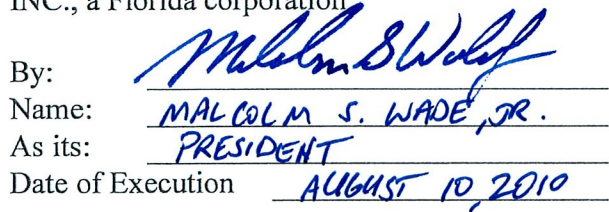 INC., a Florida corporation
By: Malcolm S Wade Jr
Name: MALCOLM S. WADE, JR.
As its: PRESIDENT
Date of Execution AUGUST 10, 2010